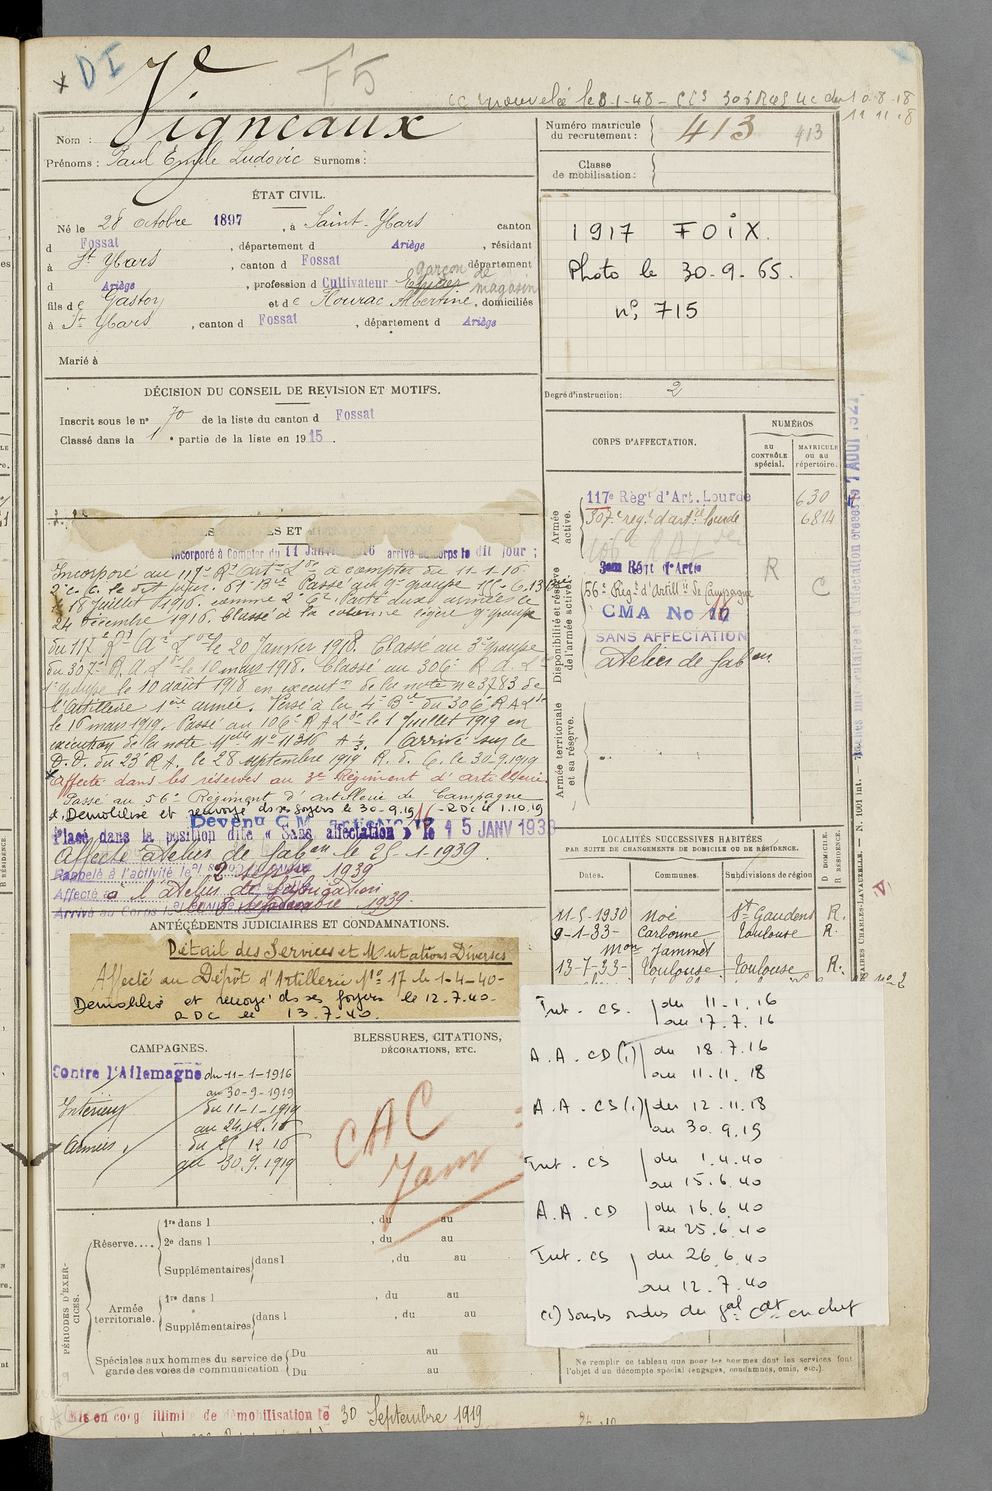 DI
F5
cc nouvelé le 8-1-48 - CCS 306 RAL
11 11 18
Nom : Vigneaux
Prénoms : Paul Emile Ludovic Surnoms :
Numéro matricule du recrutement : 413 413
Classe de mobilisation :
ÉTAT CIVIL.
Né le 28 octobre 1897, à Saint-Ybars canton
d Fossat, département d Ariège, résidant
à St Ybars, canton d Fossat, département
d Ariège, profession d Cultivateur garçon de magasin
fils de Gaston et de Hourac Albertine, domiciliés
à St Ybars, canton d Fossat, département d Ariège
Marié à
1917 FOIX.
Photo le 30-9-65.
n° 715
DÉCISION DU CONSEIL DE REVISION ET MOTIFS.
Inscrit sous le n° 70 de la liste du canton d Fossat
Classé dans la 1e partie de la liste en 1915.
Degré d'instruction : 2
CORPS D'AFFECTATION.
NUMÉROS
AU CONTRÔLE spécial.
MATRICULE ou au répertoire.
Armée active.
117e Régt d'Art. Lourde 630
307e régt d'artie lourde 6814
Disponibilité et réserve de l'armée active.
3em Régt d'Artie
56e Régt d'Artillie de Campagne
R
C
CMA No 17
SANS AFFECTATION
atelier de fabon
Armée territoriale et sa réserve.
Incorporé à Compter du 11 Janvier 1916 arrivé au corps le dit jour ;
Incorporé au 117e Rt Artie Lde à compter du 11-1-16
24 décembre 1916. Classé à la colonne légère 9e groupe
du 117e Rt A Lde le 20 Janvier 1918. Classé au 3e groupe
du 307e R.A.L. le 10 mars 1918. Classé au 306e R.A.L.
1e groupe le 10 août 1918 en executn de la note n° 3783 de
l'artillerie 1ere armée. Versé à la 4e Bie du 306 R A Lde
le 16 mars 1919. Passé au 106e R A Lde le 1 Juillet 1919 en
exécution de la note Melle N° 11316 A 1/3. Arrivé sur le
D.D. du 23 R A. le 28 septembre 1919 R. d. C. le 30-9-1919
Affecté dans les réserves au 3e Régiment d'artillerie
Passé au 56e Régiment d'artillerie de Campagne
Démobilisé et renvoyé ds ses foyers le 30-9-19 - RDC le 1.10.19
Placé dans la position dite « Sans affectation » le 15 JANV 1938
Affecté atelier de fabon le 25-1-1939.
Rappelé à l'activité le 2 septembre 1939
Affecté à l'atelier de fabrication
Arrivé au Corps le 3 septembre 1939.
ANTÉCÉDENTS JUDICIAIRES ET CONDAMNATIONS.
Détail des Services et Mutations Diverses
Affecté au Dépôt d'Artillerie No 17 le 1-4-40-
Démobilisé et renvoyé ds ses foyers le 12.7.40.
RDC le 13.7.40.
LOCALITÉS SUCCESSIVES HABITÉES
PAR SUITE DE CHANGEMENTS DE DOMICILE OU DE RÉSIDENCE.
Dates. Communes. Subdivisions de région D DOMICILE. R RÉSIDENCE.
11-5-1930 Noé St Gaudens R.
9-1-33- Carbonne Toulouse R.
Mon Jammet
13-7-33- Toulouse Toulouse R.
CAMPAGNES.
Contre l'Allemagne du 11-1-1916
au 30-9-1919
Intérieur du 11-1-1916
au 24.12.16
Armées. du 25 12 16
au 30.9.1919
BLESSURES, CITATIONS,
DÉCORATIONS, ETC.
CAC
Int. CS. du 11-1.16
au 17.7.16
A.A. CD (1) du 18.7.16
au 11.11.18
A.A. CS (1) du 12.11.18
au 30.9.19
Int. CS du 1.4.40
au 15.6.40
A.A. CD du 16.6.40
au 25.6.40
Int. CS du 26.6.40
au 12.7.40
(1) Sous les ordres du gal Cdt en chef
PÉRIODES D'EXERCICES.
Réserve....
1re dans l , du au
2e dans l , du au
Supplémentaires dans l , du au
Armée territoriale.
1re dans l , du au
Supplémentaires dans l , du au
Spéciales aux hommes du service de garde des voies de communication
Du au
Du au
Ne remplir ce tableau que pour les hommes dont les services font
l'objet d'un décompte spécial (engagés, condamnés, omis, etc.).
Mis en congé illimité de démobilisation le 30 Septembre 1919